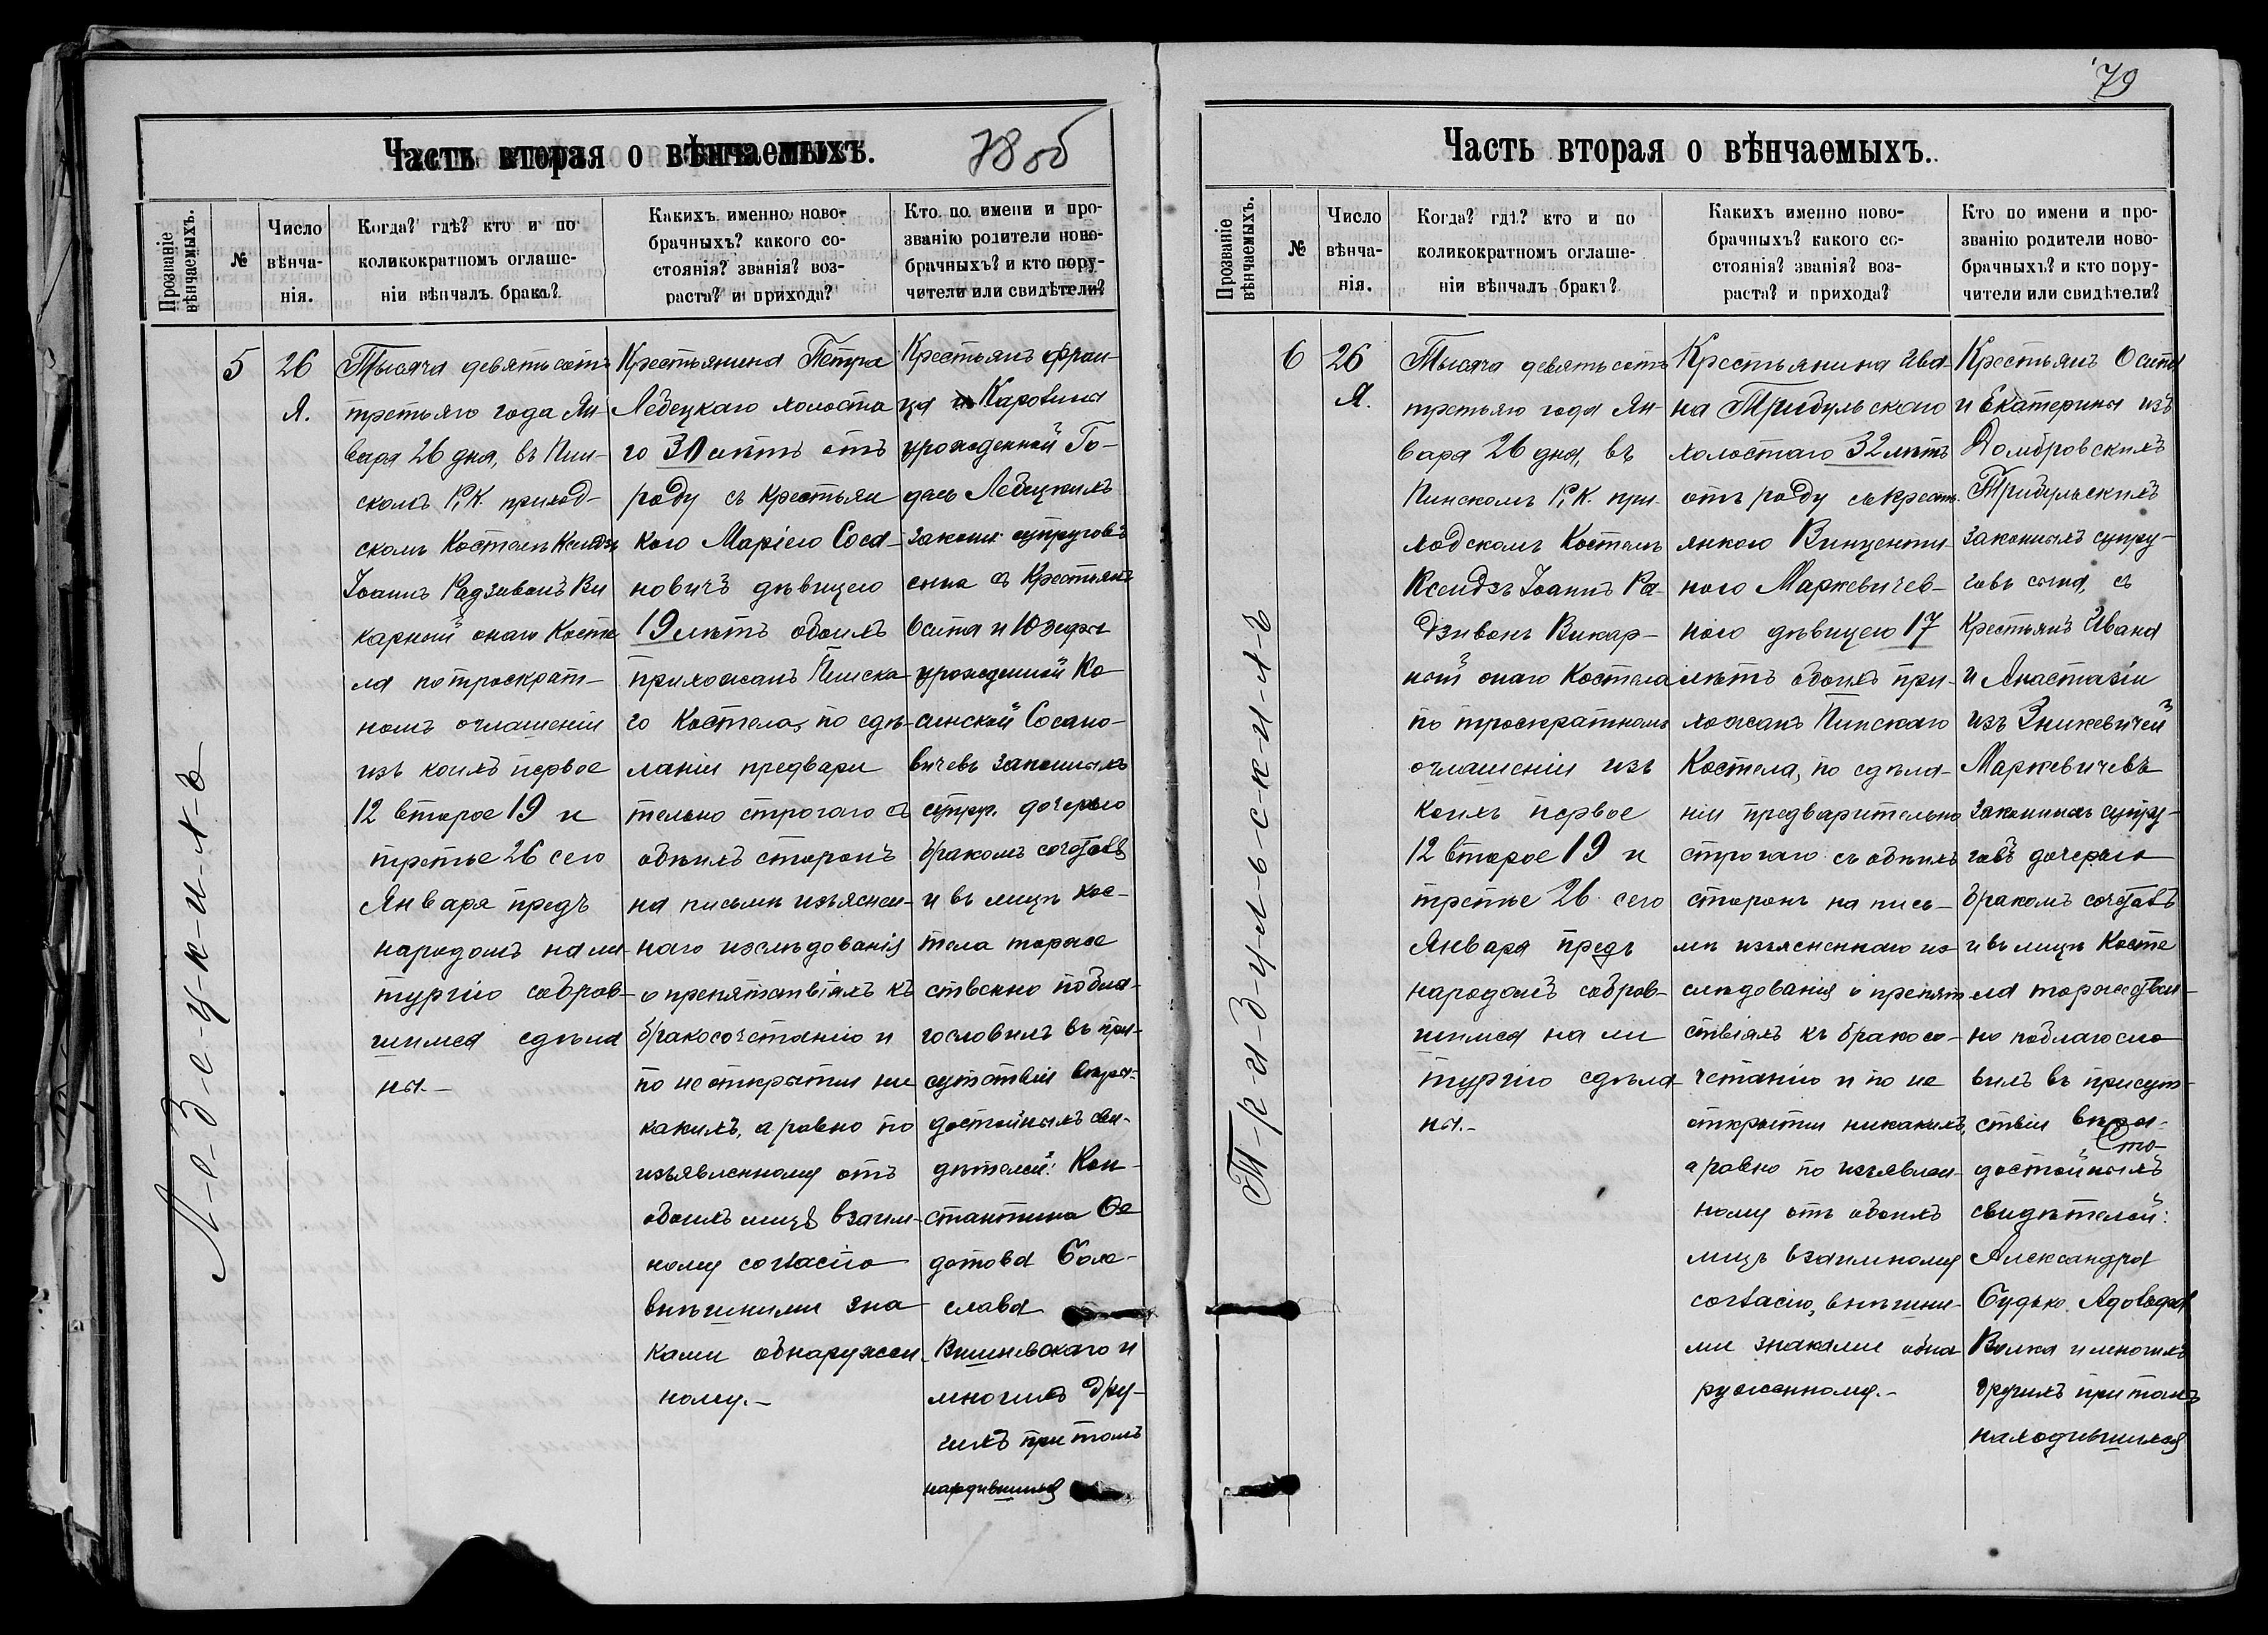 Часть вторая о вѣнчаемыхъ.
78 об
Прозваніе вѣнчаемыхъ.
№
Число вѣнча-
нія.
Когда? гдѣ? кто и по
коликократномъ оглаше-
ніи вѣнчалъ бракъ?
Какихъ именно ново-
брачныхъ? какого со-
стоянія? званія? воз-
раста? и прихода?
Кто по имени и про-
званію родители ново-
брачныхъ? и кто пору-
чители или свидѣтели?
Л-е-б-е-ц-к-и-х-ъ
5
26
Я.
Тысяча девятьсотъ
третьяго года Ян-
варя 26 дня, въ Пин-
скомъ Р. К. приход-
скомъ Костелѣ Ксендзъ
Іоаннъ Радзивонъ Ви
карный онаго Косте
ла по троекрат-
номъ оглашеніи
изъ коихъ первое
12 второе 19 и
третье 26 сего
Января предъ
народомъ на ли-
тургію собрав-
шимся сдѣла
ны.-
Крестьянина Петра
Лебецкаго холоста
го 30 лѣтъ отъ
роду съ крестьян
кою Маріею Соса-
новичъ дѣвицею
19 лѣтъ обоихъ
прихожанъ Пинска-
го Костела, по сдѣ-
ланіи предвари
тельно строгаго съ
обѣихъ сторонъ
на письмѣ изъяснен-
наго изслѣдованія
о препятствіяхъ къ
бракосочетанію и
по неоткрытіи ни
какихъ, а равно по
изъявленному отъ
обоихъ лицъ взаим-
ному согласію
внѣшними зна
ками обнаружен-
ному.-
Крестьянъ Фран-
ца и Каролины
урожденной Го-
дась Лебецкихъ
законн. супруговъ
сына съ Крестьянъ
Осипа и Юзефы
урожденной Ко-
синской Сосано-
вичевъ законныхъ
супр. дочерью
бракомъ сочеталъ
и въ лицѣ Кос-
тела торже
ственно побла-
гословилъ въ при-
сутствіи вѣро-
достойныхъ сви-
дѣтелей: Кон-
стантина Фе
дотова Боле-
слава
Вишневскаго и
многихъ дру-
гихъ при томъ
находившихся
79
Часть вторая о вѣнчаемыхъ.
Прозваніе вѣнчаемыхъ.
№
Число
вѣнча-
нія.
Когда? гдѣ? кто и по
коликократномъ оглаше-
ніи вѣнчалъ бракъ?
Какихъ именно ново-
брачныхъ? какого со-
стоянія? званія? воз-
раста? и прихода?
Кто по имени и про-
званію родители ново-
брачныхъ? и кто пору-
чители или свидѣтели?
Т-р-и-б-у-л-ь-с-к-и-х-ъ
6
26
Я.
Тысяча девятьсотъ
третьяго года Ян-
варя 26 дня, въ
Пинскомъ Р. К. при-
ходскомъ Костелѣ
Ксендзъ Іоаннъ Ра-
дзивонъ Викар-
ный онаго Костела
по троекратномъ
оглашеніи изъ
коихъ первое
12 второе 19 и
третье 26 сего
Января предъ
народомъ собрав-
шимся на ли
тургію сдѣла-
ны.-
Крестьянина Ива-
на Трибульскаго
холостаго 32 лѣтъ
отъ роду съ крест-
янкою Винценти-
ною Маркевичев-
ною дѣвицею 17
лѣтъ обоихъ при-
хожанъ Пинскаго
Костела, по сдѣла-
ніи предварительно
строгаго съ обѣихъ
сторонъ на пись-
мѣ изъясненнаго из-
слѣдованія о препят
ствіяхъ къ бракосо-
четанію и по не
открытіи никакихъ,
а равно по изъявлен-
ному отъ обоихъ
лицъ взаимному
согласію, внѣшни-
ми знаками обна
руженному.-
Крестьянъ Осипа
и Екатерины изъ
Домбровскихъ
Трибульскихъ
законныхъ супру-
говъ сына, съ
Крестьянъ Ивана
и Анастазіи
изъ Зинкевичей
Маркевичевъ
законныхъ супру-
говъ дочерью
бракомъ сочеталъ
и въ лицѣ Косте
ла торжествен-
но поблагосло
вилъ въ присут-
ствіи вѣро-
достойныхъ
свидѣтелей:
Александра
Будько Адольфа
Волка и многихъ
другихъ при томъ
находившихся